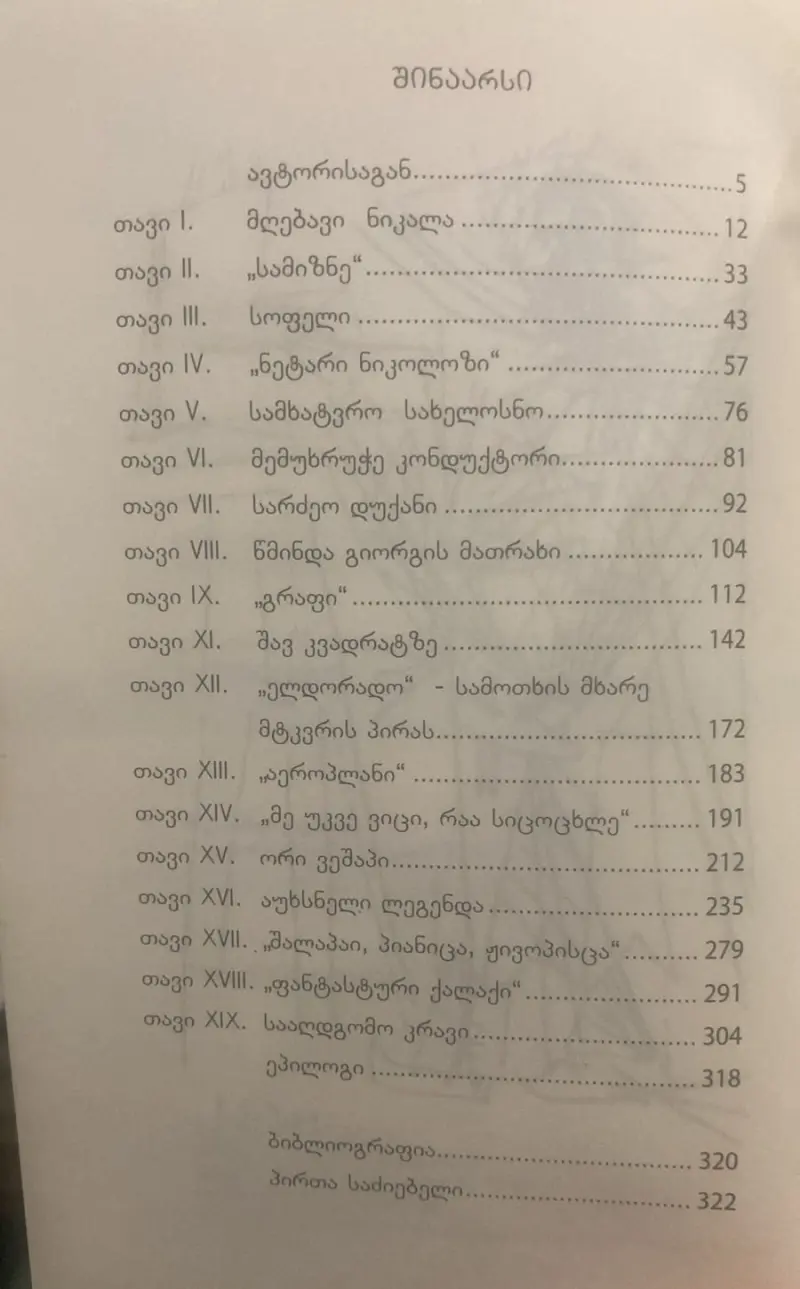 შინაარსი
ავტორისაგან........................................5
თავი I. მღებავი ნიკალა ........................................12
თავი II. „სამიზნე“........................................33
თავი III. სოფელი ........................................43
თავი IV. „ნეტარი ნიკოლოზი“ ........................................57
თავი V. სამხატვრო სახელოსნო........................................76
თავი VI. მემუხრუჭე კონდუქტორი........................................81
თავი VII. სარძეო დუქანი ........................................92
თავი VIII. წმინდა გიორგის მათრახი ........................................104
თავი IX. „გრაფი“........................................112
თავი XI. შავ კვადრატზე........................................142
თავი XII. „ელდორადო“ - სამოთხის მხარე
მტკვრის პირას........................................172
თავი XIII. „აეროპლანი“ ........................................183
თავი XIV. „მე უკვე ვიცი, რაა სიცოცხლე“.........191
თავი XV. ორი ვეშაპი........................................212
თავი XVI. აუხსნელი ლეგენდა........................................235
თავი XVII. „შალაპაი, პიანიცა, ჟივოპისცა“..........279
თავი XVIII. „ფანტასტური ქალაქი“........................................291
თავი XIX. სააღდგომო კრავი........................................304
ეპილოგი ........................................318
ბიბლიოგრაფია........................................320
პირთა საძიებელი........................................322